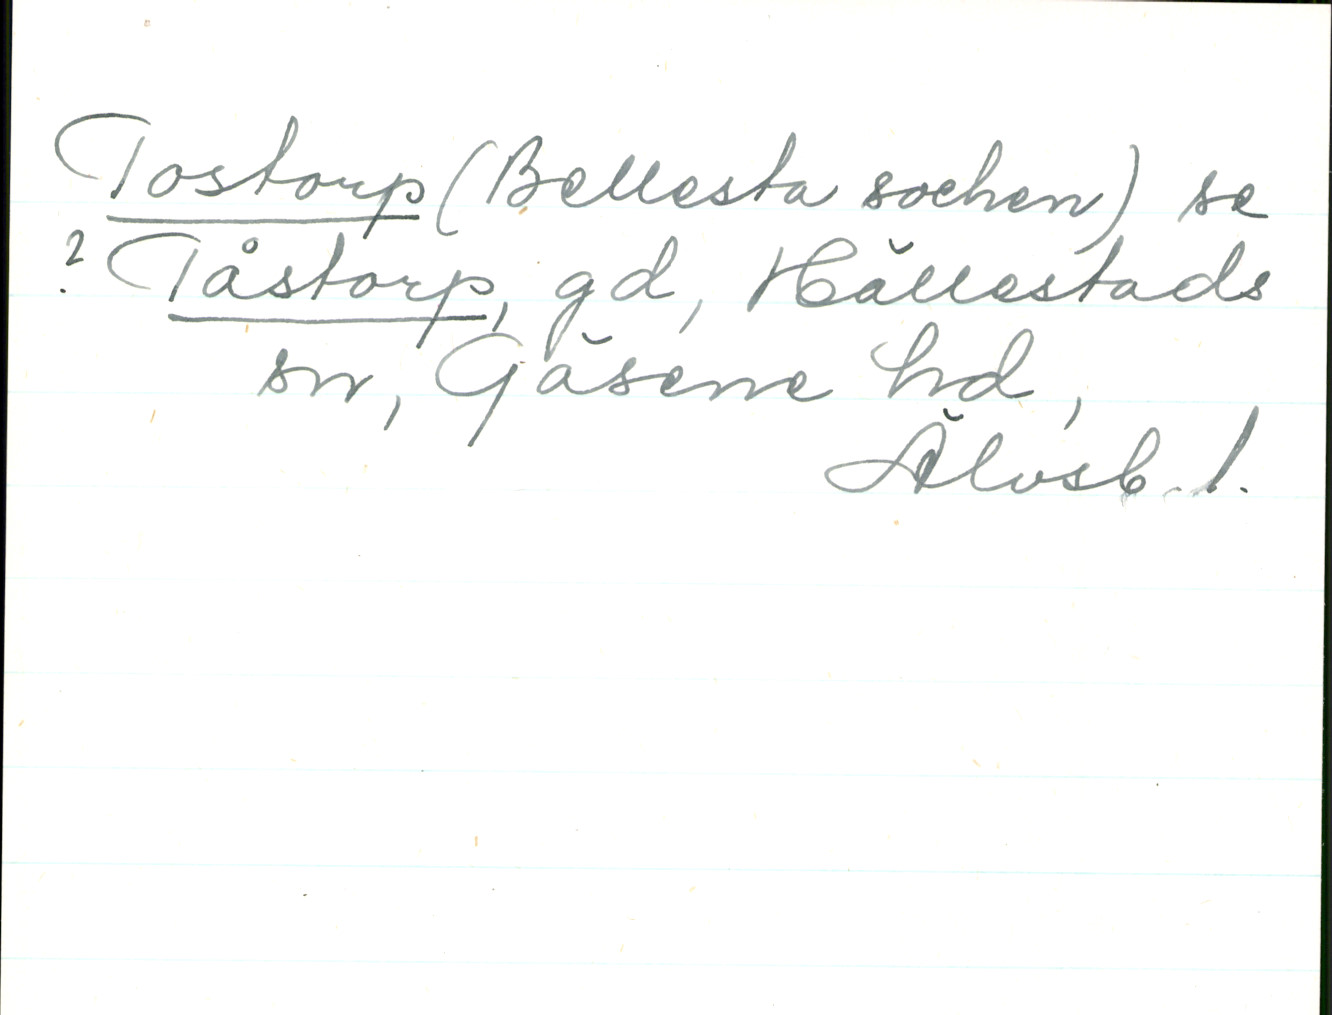 Tostorp (Bellesta sochen) se
? Tåstorp, gd, Hällestads
sn, Gäsene hd,
Älvsb. l.